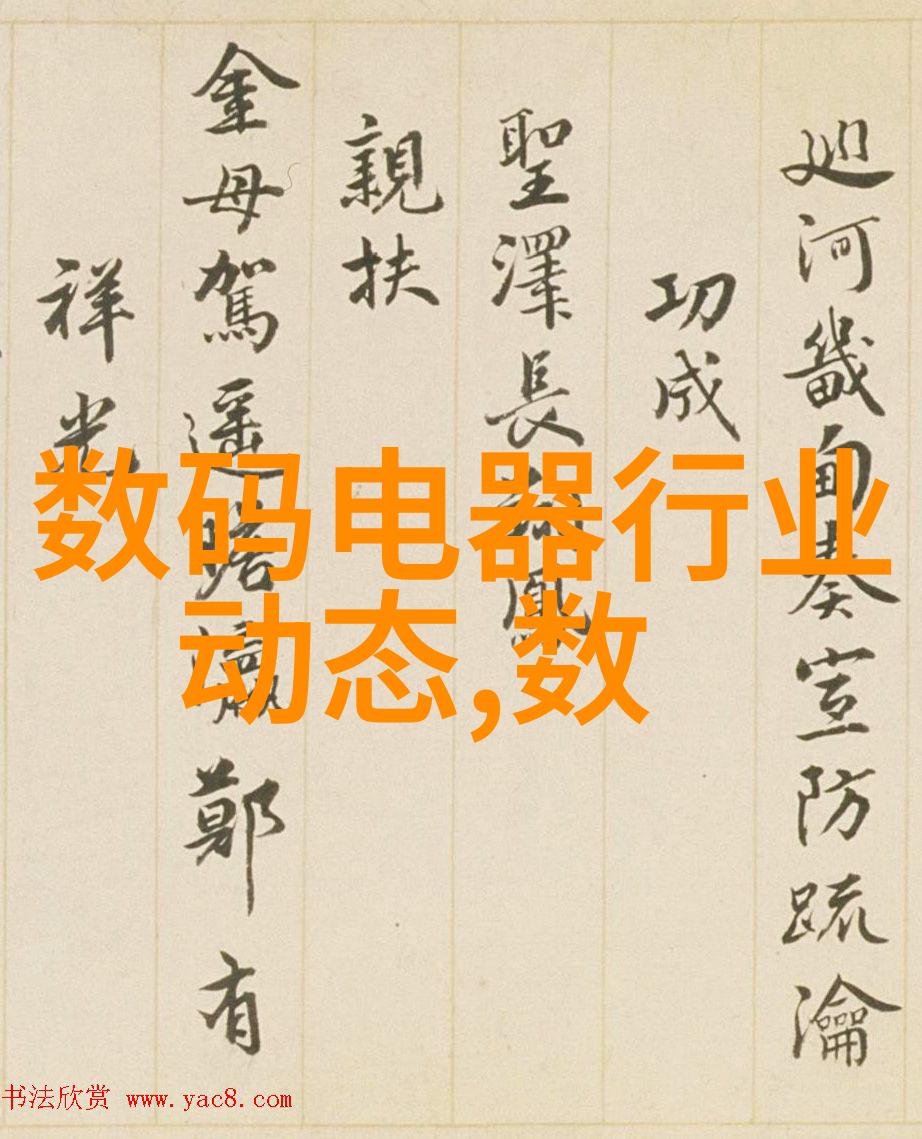 廵河畿甸奏宣防疏瀹
功成
聖澤長鳳
親扶
金母駕遥瞻鄭有
祥光
数码电器行业
动态,数
书法欣赏 www.yac8.com